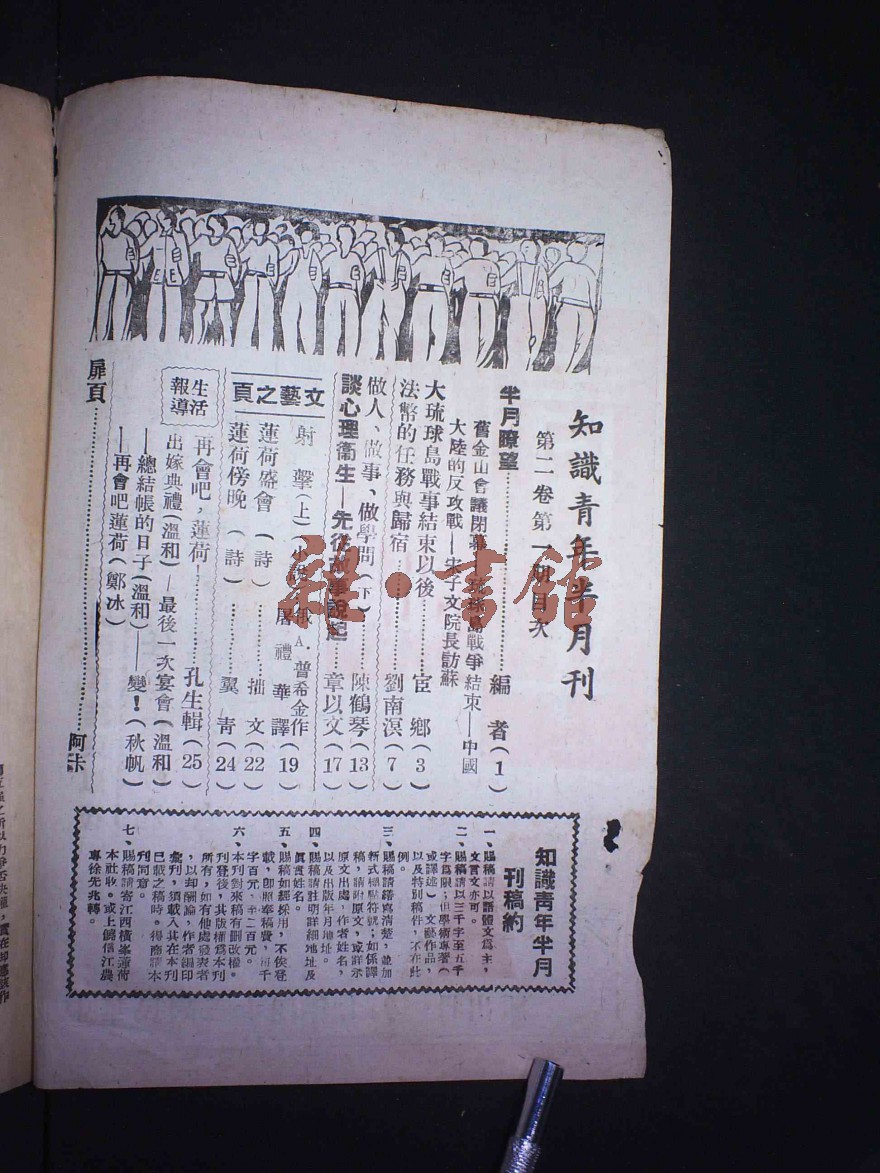 知識青年半月刊
第二卷第一期目次
半月瞭望……編者(1)
舊金山會議閉幕—琉球島戰爭結束—中國
大陸的反攻戰—宋子文院長訪蘇
大琉球島戰事結束以後……宦鄉(3)
法幣的任務與歸宿……劉南溟(7)
做人、做事、做學問(下)……陳鶴琴(13)
談心理衞生—先從故事說起……章以文(17)
文藝之頁
射擊(上)小說 俄A.普希金作
屠禮華譯(19)
蓮荷盛會(詩)……拙文(22)
蓮荷傍晚(詩)……翼青(24)
生活報導
再會吧,蓮荷……孔生輯(25)
出嫁典禮(溫和)—最後一次宴會(溫和)
—總結帳的日子(溫和)—變!(秋帆)
—再會吧蓮荷(鄭冰)
扉頁……阿卡
知識青年半月
刊稿約
一、賜稿請以語體文爲主,
文言文亦可。
二、賜稿請以三千字至五千
字爲限;但學術專著(
或譯述)文藝作品,
以及特別稿件,不在此
例。
三、賜稿請繕寫清楚,並加
新式標點符號;如係譯
稿,請附原文,或詳示
原文出處,作者姓名,
以及出版年月地址。
四、賜稿請註明詳細地址及
眞實姓名。
五、賜稿如經採用,不俟登
載,即照奉稿費,每千
字百元,至二百元。
六、本刊對來稿有刪改權。
刊登後,其版權爲本刊
所有,如有他處發表者
,以却酬論,作者編印
彙刊,須載入其在本刊
已載之稿時。得商請本
刊同意。
七、賜稿請寄江西橫峯蓮荷
本社收。或上饒信江農
專徐先兆轉。
程·書館